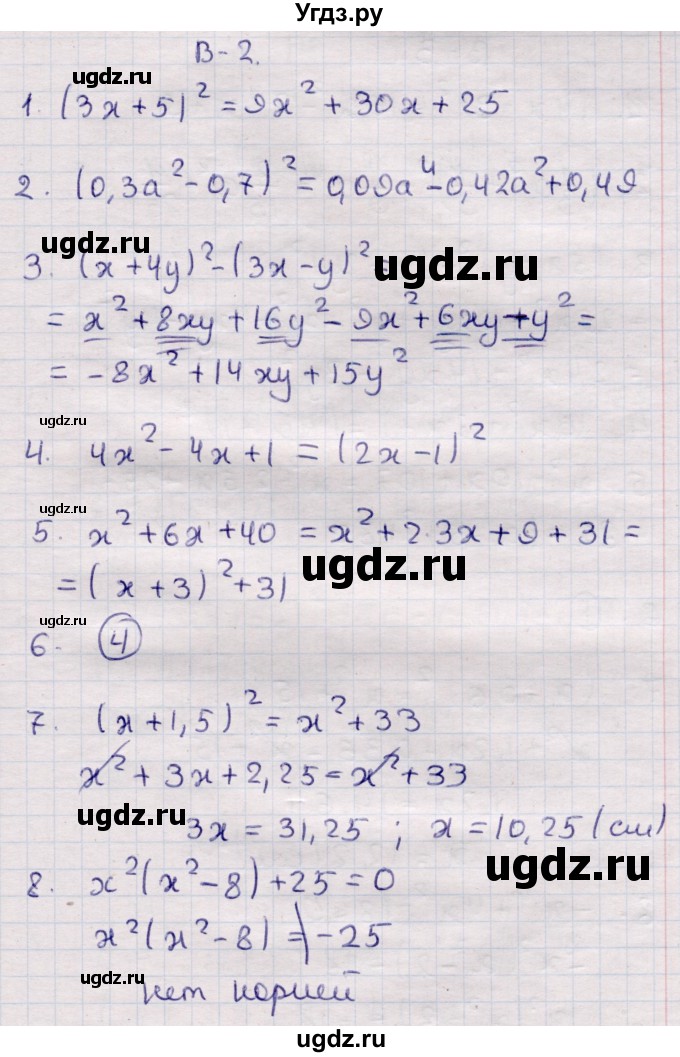 Угдз.ру
В-2.
ugdz.ru
1. (3x+5)² = 9x² + 30x + 25
ugdz.ru
2. (0,3a² - 0,7)² = 0,09a⁴ - 0,42a² + 0,49
ugdz.ru
3. (x+4y)² - (3x-y)² =
ugdz.ru
= x² + 8xy + 16y² - 9x² + 6xy + y² =
= -8x² + 14xy + 15y²
ugdz.ru
4. 4x² - 4x + 1 = (2x-1)²
ugdz.ru
5. x² + 6x + 40 = x² + 2·3x + 9 + 31 =
ugdz.ru
= (x+3)² + 31
ugdz.ru
6. 4
7. (x+1,5)² = x² + 33
x² + 3x + 2,25 = x² + 33
ugdz.ru
3x = 31,25 ; x = 10,25 (см)
ugdz.ru
8. x²(x²-8) + 25 = 0
x²(x²-8) = -25
ugdz.ru
нет корней
ugdz.ru